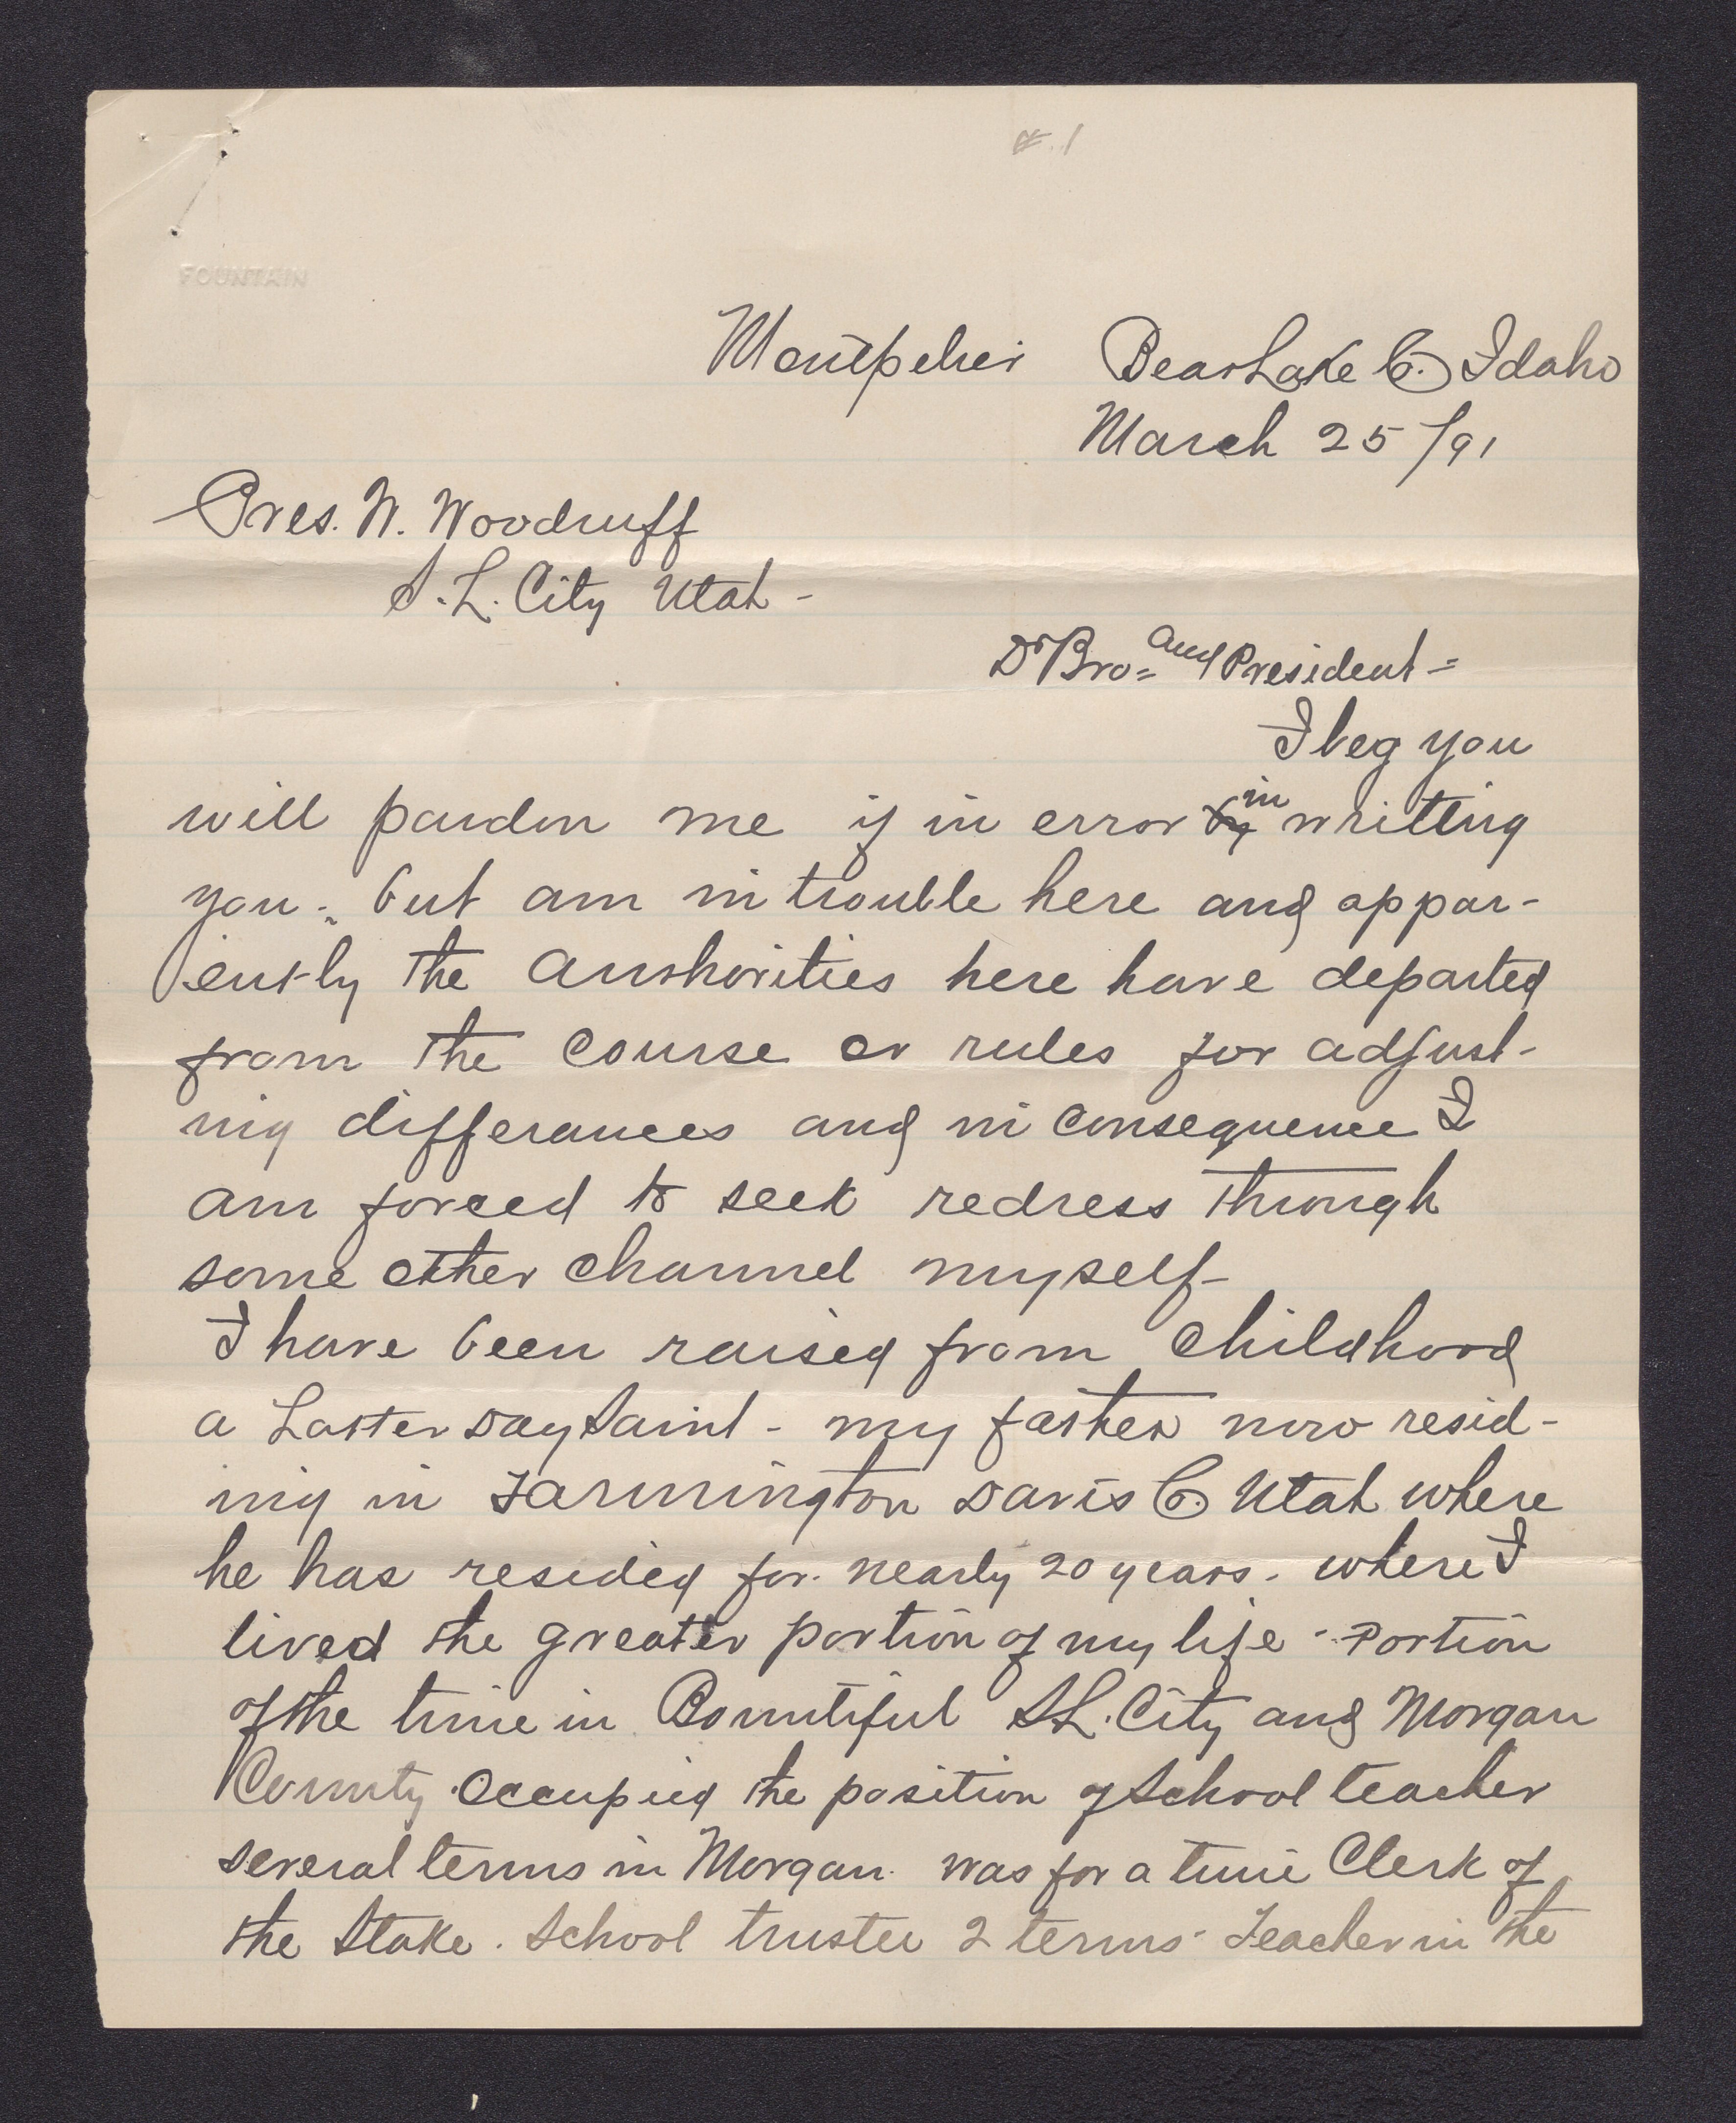 #.1
FOUNTAIN
Montpelier Bear Lake Co. Idaho
March 25/91
Pres. W. Woodruff
S.L. City Utah -
Dr Bro= and President=
I beg you
will pardon me if in error by in writting
you - but am in trouble here and appar-
ently the Authorities here have departed
from the course or rules for adjust-
ing differances and in consequence I
am forced to seek redress through
some other channel myself-
I have been raised from childhood
a Latter Day Saint - my father now resid-
ing in Farmington Davis Co. Utah where
he has resided for nearly 20 years. where I
lived the greater portion of my life - Portion
of the time in Bountiful S.L. City and Morgan
County. Occupied the position of School teacher
several terms in Morgan. was for a time Clerk of
the Stake. School trustee 2 terms - Teacher in the